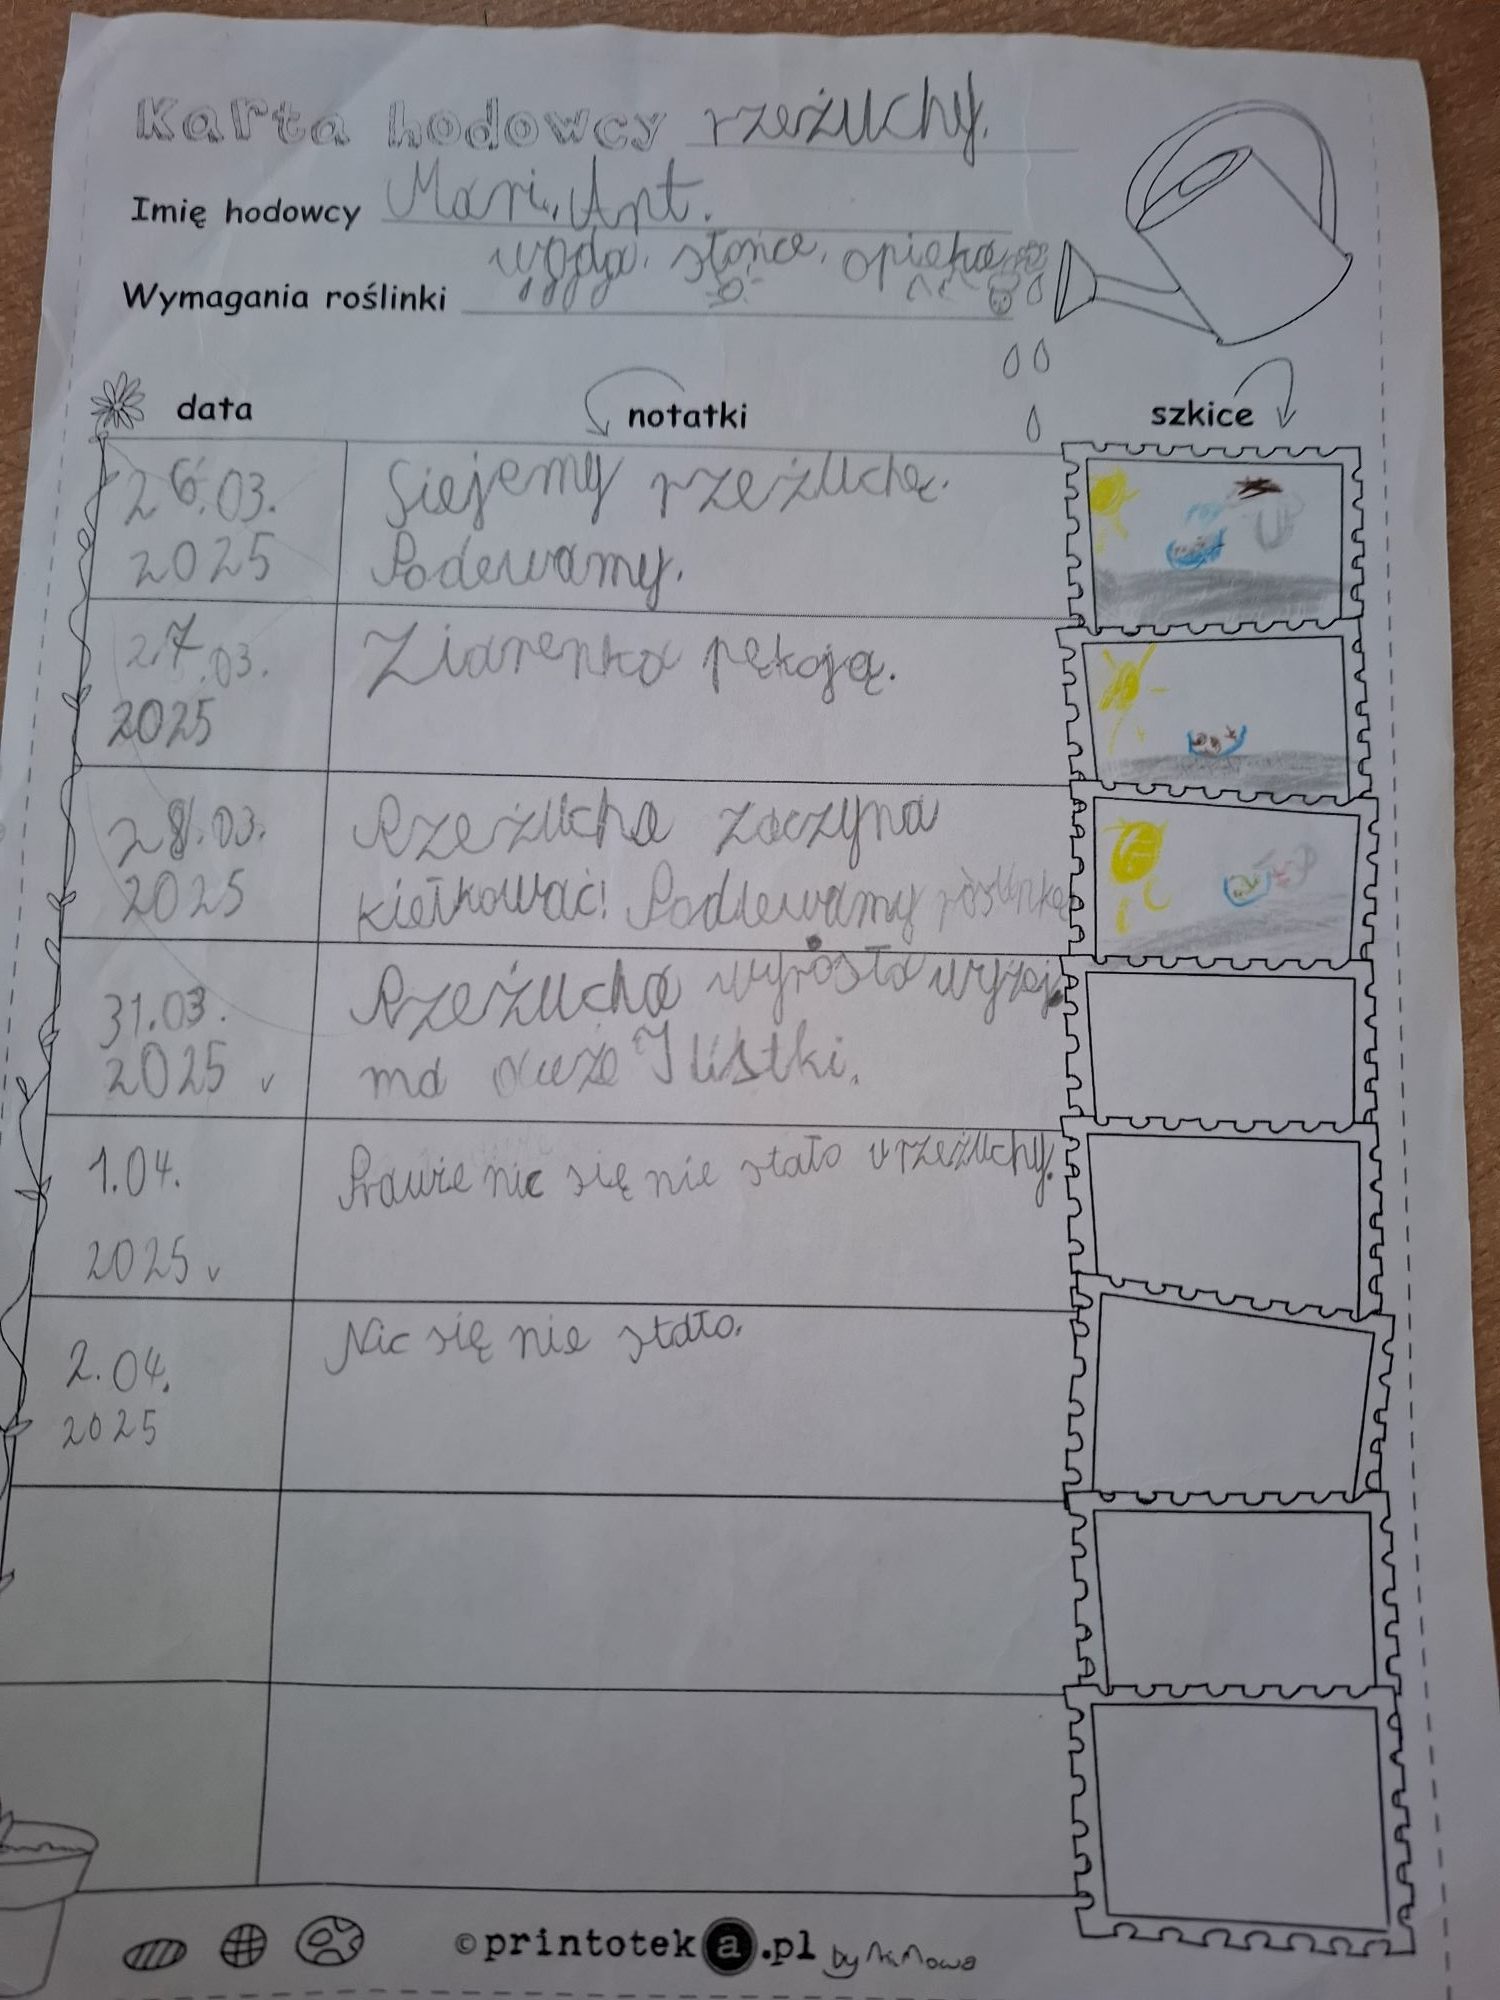 Karta hodowcy rzeżuchy.
Imię hodowcy Mari, Ant.
woda, słońce, opieka
Wymagania roślinki
data notatki szkice
26.03. Siejemy rzeżuchę.
2025 Podewamy.
27.03. Ziarenka pękają.
2025
28.03. Rzeżucha zaczyna
2025 kiełkować! Podlewamy roślinkę
31.03. Rzeżucha wyrosła wyżej
2025 ma duże listki.
1.04. Prawie nic się nie stało u rzeżuchy.
2025
2.04. Nic się nie stało.
2025
©printoteka.pl by